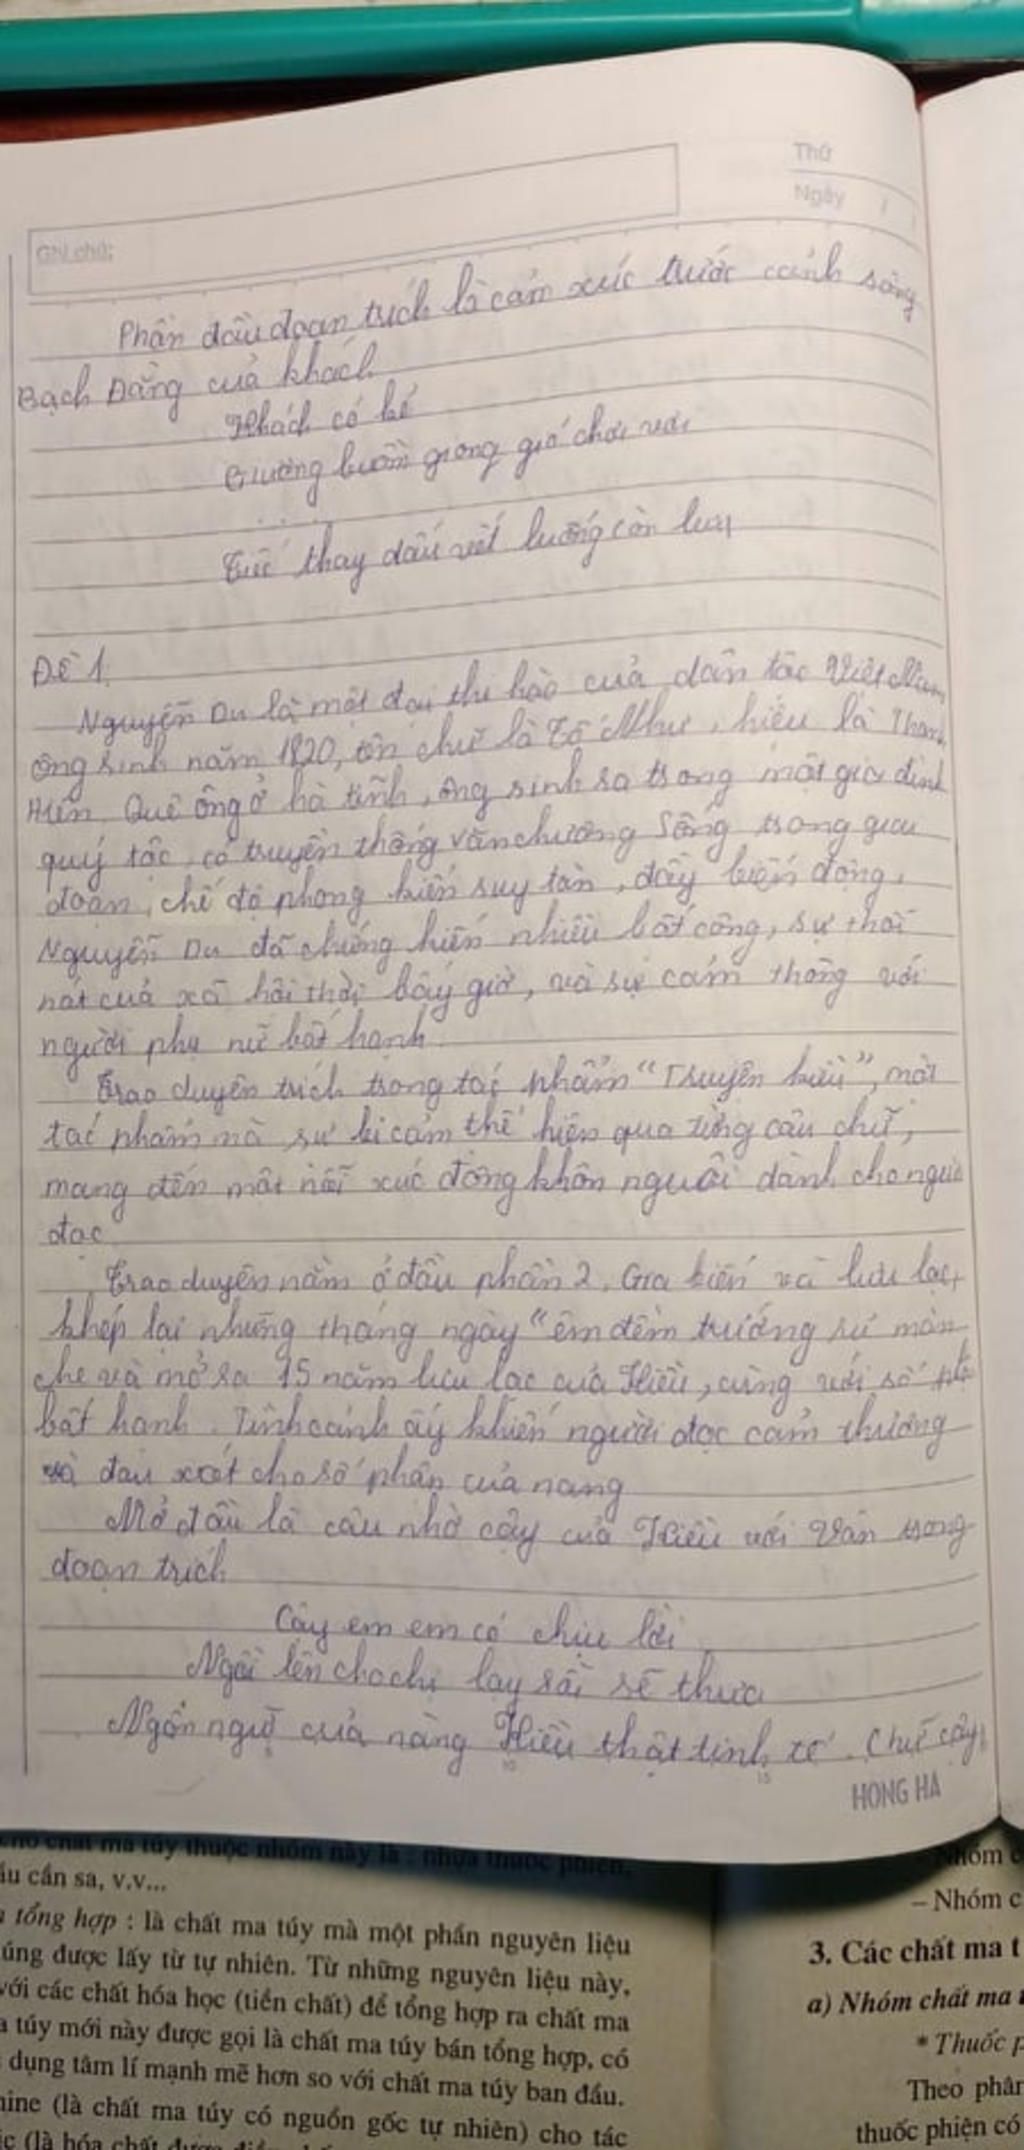 Thứ
Ngày / /
Ghi chú:
Phần đầu đoạn trích là cảm xúc trước cảnh sông
Bạch Đằng của khách
Khách có kẻ
Giương buồm giong gió chơi vơi
...
Tiếc thay dấu vết luống còn lưu
Đề 1.
Nguyễn Du là một đại thi hào của dân tộc Việt Nam,
ông sinh năm 1820, tên chữ là Tố Như, hiệu là Thanh
Hiên. Quê ông ở hà tĩnh, ông sinh ra trong một gia đình
quý tộc, có truyền thống văn chương Sống trong giai
đoạn, chế độ phong kiến suy tàn, đầy biến động,
Nguyễn Du đã chứng kiến nhiều bất công, sự thối
nát của xã hội thời bấy giờ, và sự cảm thông với
người phụ nữ bất hạnh.
Trao duyên trích trong tác phẩm "Truyện kiều", một
tác phẩm mà sự bi cảm thể hiện qua từng câu chữ,
mang đến một nỗi xúc động khôn nguôi dành cho người
đọc
Trao duyên nằm ở đầu phần 2, Gia biến và lưu lạc,
khép lại những tháng ngày "êm đềm trướng rủ màn
che và mở ra 15 năm lưu lạc của Kiều, cùng với số
bất hạnh. Tình cảnh ấy khiến người đọc cảm thương
và đau xót cho số phận của nàng
Mở đầu là câu nhờ cậy của Kiều với Vân trong
đoạn trích
Cậy em em có chịu lời
Ngồi lên cho chị lạy rồi sẽ thưa
Ngôn ngữ của nàng Kiều thật tinh tế. Chữ cậy
HONG HA
cho chất ma túy thuộc nhóm này là : nhựa thuốc phiện,
cần sa, v.v...
tổng hợp : là chất ma túy mà một phần nguyên liệu
được lấy từ tự nhiên. Từ những nguyên liệu này,
với các chất hóa học (tiền chất) để tổng hợp ra chất ma
túy mới này được gọi là chất ma túy bán tổng hợp, có
dụng tâm lí mạnh mẽ hơn so với chất ma túy ban đầu.
(là chất ma túy có nguồn gốc tự nhiên) cho tác
(là hóa chất được
Nhóm
– Nhóm c
3. Các chất ma t
a) Nhóm chất ma
* Thuốc p
Theo phân
thuốc phiện có